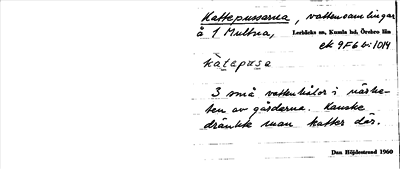 Kattepussarna, vattensamlingar
å 1 Multna, Lerbäcks sn, Kumla hd, Örebro län
ek 9F6b:1014
katapusa
3 små vattenhålor i närhe-
ten av gårdarna. Kanske
dränkte man katter där.
Dan Höjdestrand 1960